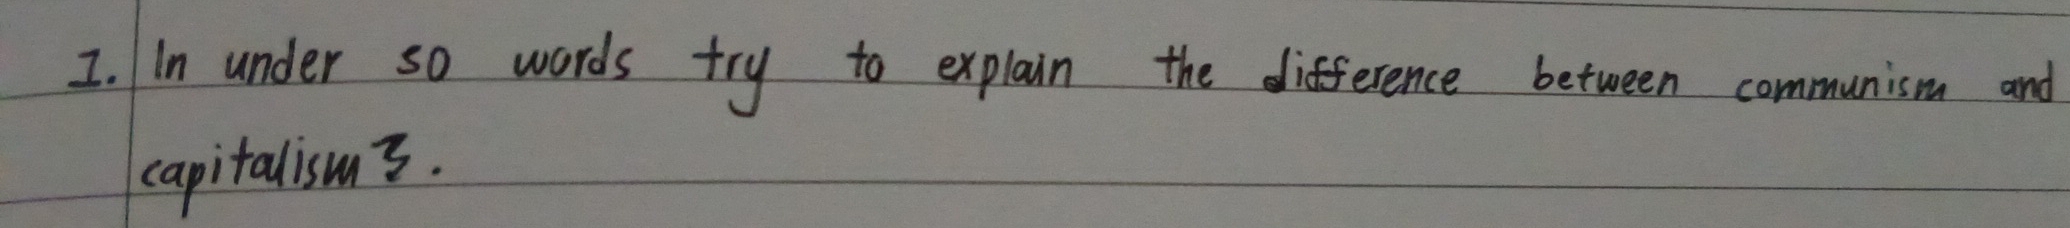 1. In under 50 words try to explain the difference between communism and
capitalism?.